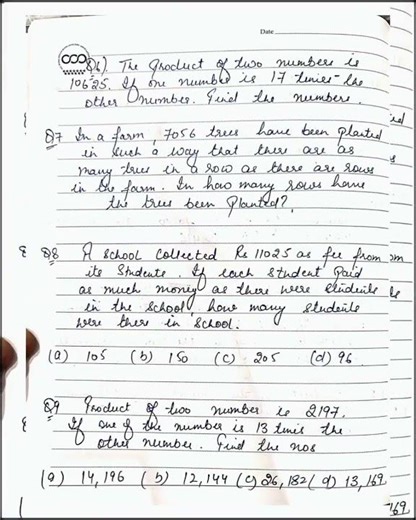 Date
Q6) The Product of two numbers is
10625. If one number is 17 times the
other number. Find the numbers.
Q7 In a farm, 7056 trees have been planted
in such a way that there are as
many trees in a row as there are rows
in the farm. In how many rows have
the trees been planted?
Q8 A school collected Rs 11025 as fee from
its students. If each student paid
as much money as there were students
in the school, how many students
were there in school.
(a) 105 (b) 150 (c) 205 (d) 96
Q9 Product of two number is 2197.
If one of the number is 13 times the
other number. Find the nos
(a) 14,196 (b) 12,144 (c) 26,182 (d) 13,169
169